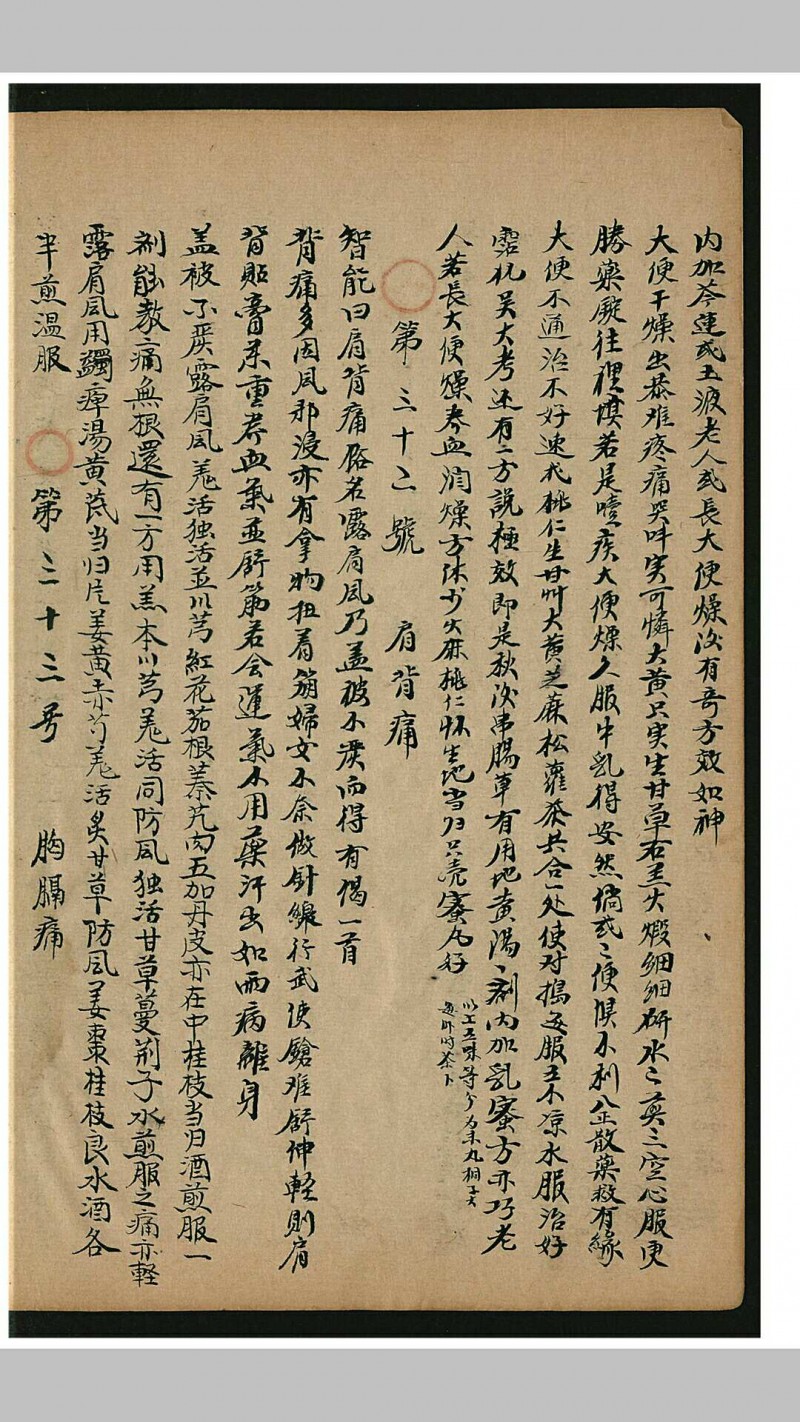 内加芩連或五液老人或長大便燥没有奇方效如神
大便干燥出恭难疼痛哭呌实可憐大黄只实生甘草右五火煅细细研水二真三空心服更
勝藥殿往裡填若是噎疾大便燥久服牛乳得安然倘或二便俱不利八正散藥救有緣
大便不通治不好速求桃仁生甘艸大黄芝蔴松蘿茶共合一处使对搗每服五不凉水服治好
需杭吴大考还有二方説極效即是秋没串腸草有用地黄湯二剂内加乳蜜方亦巧老
人若長大便燥养血潤燥方休少火麻桃仁怀生地当归只壳蜜丸好
以上五味等分為末丸桐子大
每卧时茶下
第三十二號 肩背痛
智能曰肩背痛俗名露肩风乃盖被不嚴而得有偈一首
背痛多因风邪浸亦有拿物扭着筋婦女不奈做針線行武使鎗难舒伸軽則肩
背貼膏药重养血氣並舒筋若会運氣不用藥汗出如雨病離身
盖被不嚴露肩风羌活独活並川芎紅花茄根蓁艽肉五加丹皮亦在中桂枝当归酒煎服一
剂能教痛無根還有一方用羔本川芎羌活同防风独活甘草蔓荆子水煎服之痛亦軽
露肩风用蠲痺湯黄茋当归片姜黄赤芍羌活炙甘草防风姜棗桂枝良水酒各
半煎温服 第三十三号 胸膈痛